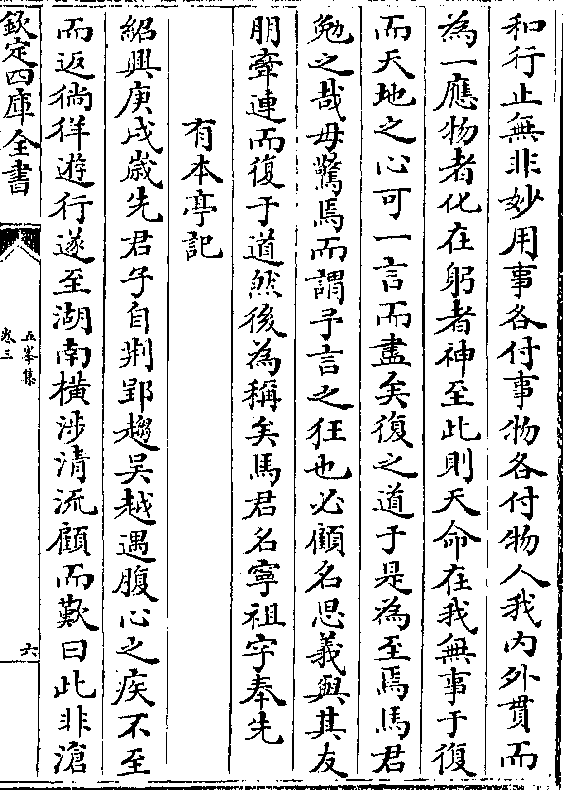 和行止無非妙用事各付事物各付物人我内外貫而
為一應物者化在躬者神至此則天命在我無事于復
而天地之心可一言而盡矣復之道于是為至焉馬君
勉之哉毋驚焉而謂予言之狂也必顧名思義與其友
朋牽連而復于道然後為稱矣馬君名寧祖字奉先
有本亭記
紹興庚戌歳先君子自荆郢趨吳越遇腹心之疾不至
而返徜徉遊行遂至湖南横涉清流顧而歎曰此非滄
欽定四庫全書
五峯集
卷三
六